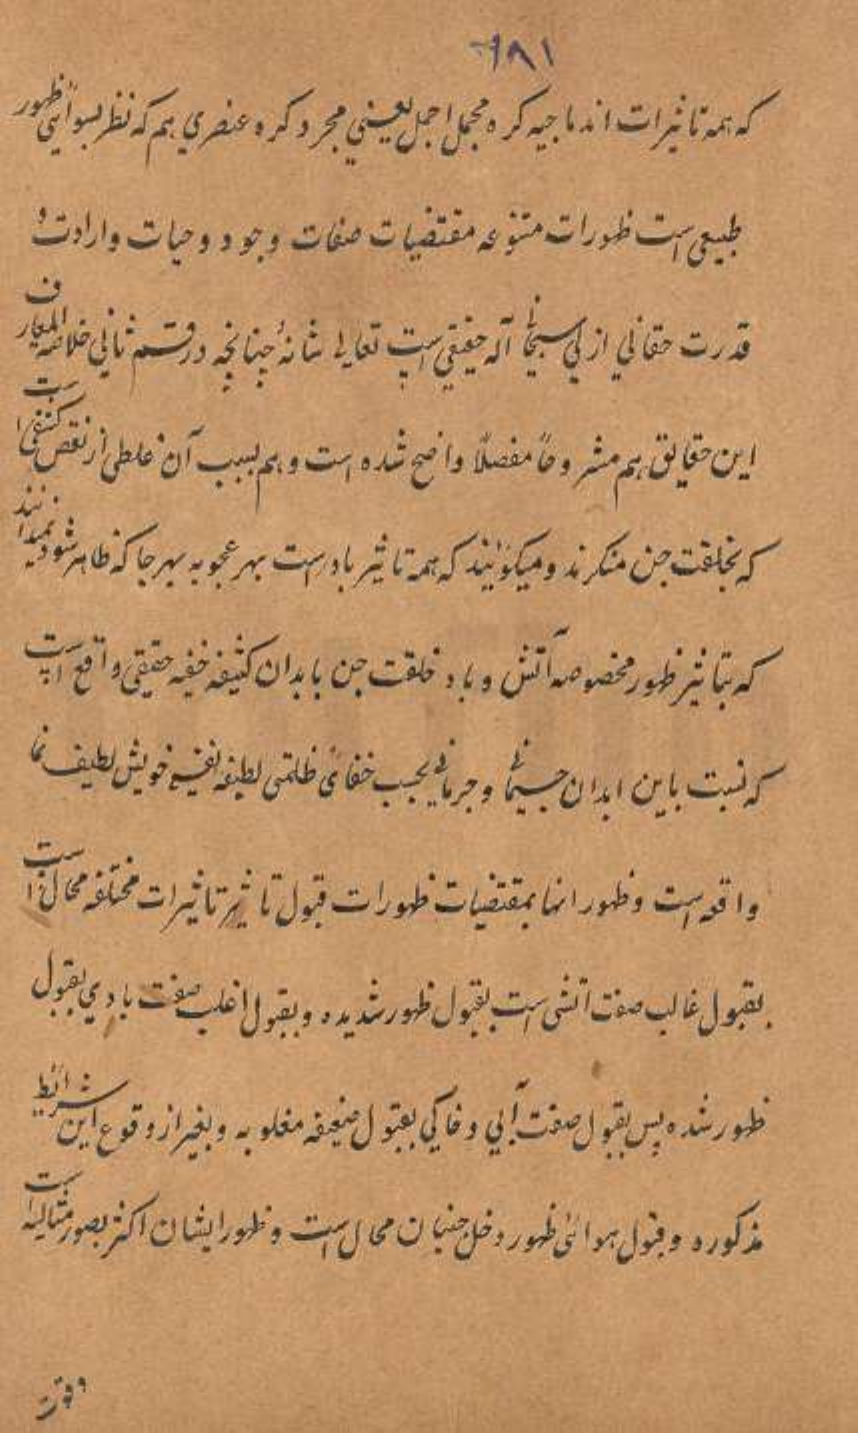 ۹۸۱
که همه تاثیرات اندماجیه کره مجمل اجمل یعنی مجرد کره عنصری هم که نظر بسوائی ظهور
طبیعی است ظهورات متنوعه مقتضیات صفات وجود و حیات و ارادت و
قدرت حقانی ازلی سبحانی آله حقیقی است تعالی شانهٔ چنانچه در قسم ثانی خلاصه المعارف
این حقایق هم مشروحاً مفصلاً واضح شده است و هم بسبب آن غلطی از نقص کشفی است
که بخلقت جن منکرند و میگویند که همه تاثیر باد است بهر عجوبه بهر جا که ظاهر شود نمیدانند
که بتاثیر ظهور مخصوصه آتش و باد خلقت جن بابدان کثیفه خفیه حقیقی واقع است
که نسبت باین ابدان جسمانی و جرمانی بحسب خفائی ظلمتی لطیفه نفیسه خویش لطیف نما
واقعه است و ظهور انها بمقتضیات ظهورات قبول تاثیر تاثیرات مختلفه محال است
بقبول غالب صفت اتشی است بقبول ظهور شدیده و بقبول اغلب صفت بادی بقبول
ظهور شده پس بقبول صفت آبی و خاکی بقبول ضعیفه مغلوبه و بغیر از وقوع این شرائط
مذکوره و قبول هوائی ظهور دخل جنیان محال است و ظهور ایشان اکثر بصور مثالیه است